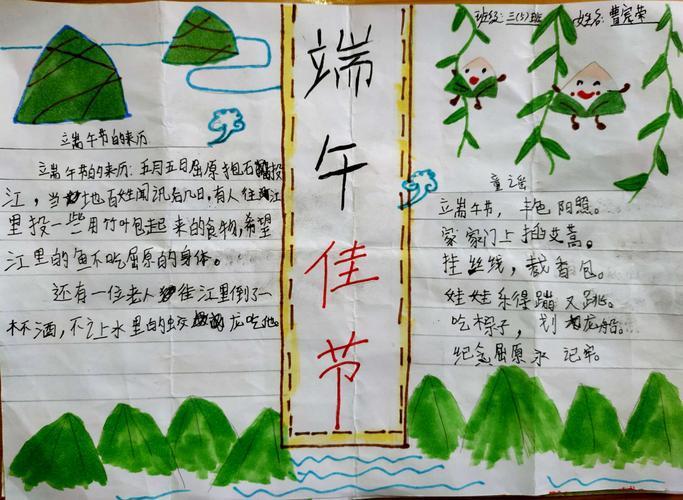 端午佳节
班级:三(5)班 姓名:曹宸荣
立端午节的来历
立端午节的来历:五月五日屈原抱石投
江,当地百姓闻讯后几日,有人往江
里投一些用竹叶包起来的食物,希望
江里的鱼不吃屈原的身体。
还有一位老人往江里倒了一
杯酒,不让水里的蛟龙吃他。
童谣
立端午节,丰色阳照。
家家门上插艾蒿。
挂丝线,戴香包。
娃娃乐得蹦又跳。
吃粽子,划龙船。
纪念屈原永记牢。